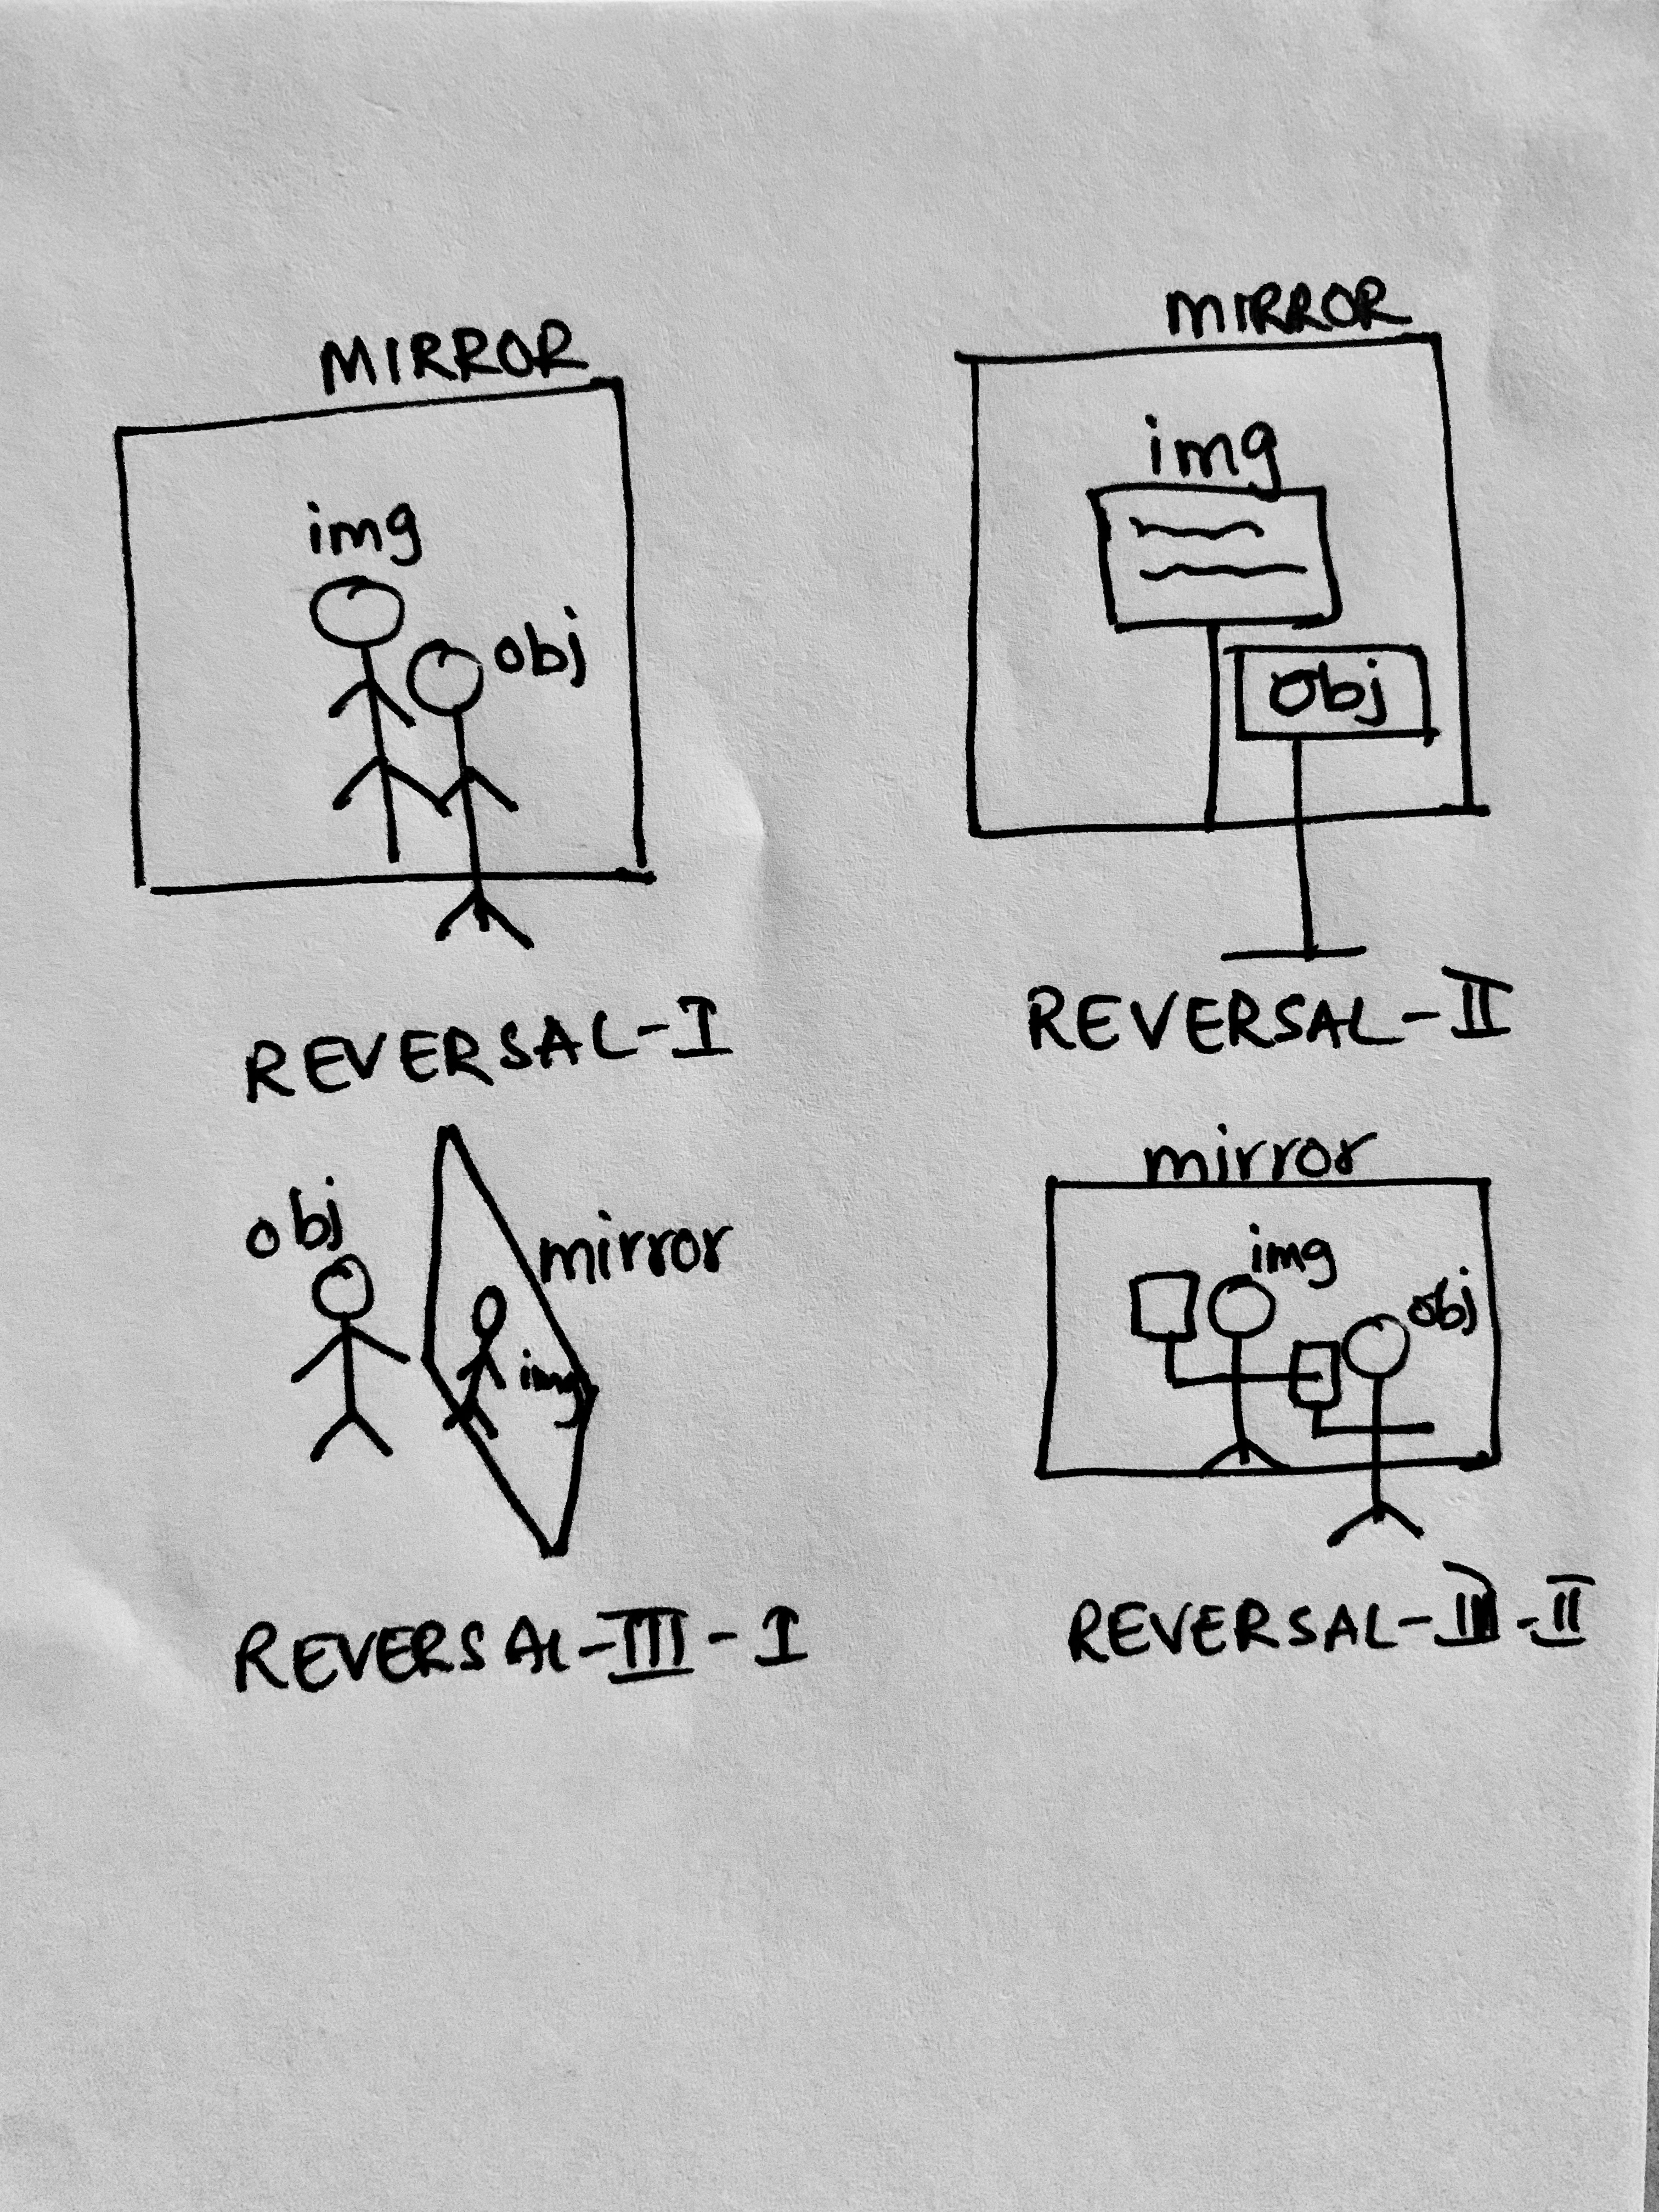 MIRROR
img
obj
REVERSAL-I
MIRROR
img
obj
REVERSAL-II
obj
mirror
img
REVERSAL-III-I
mirror
img
obj
REVERSAL-III-II